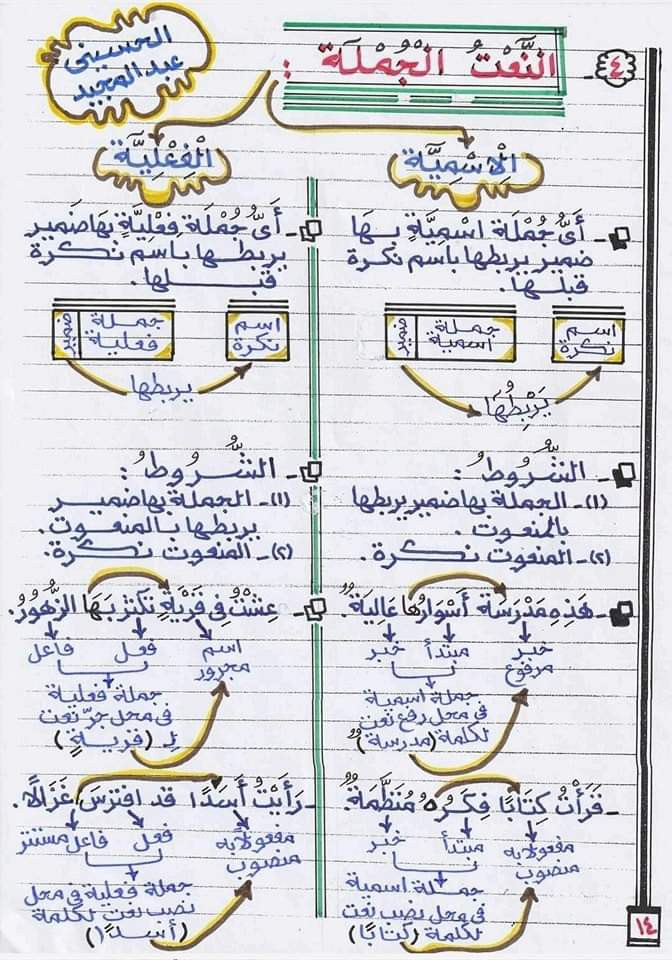 ٤ - النَّعْتُ الْجُمْلَة :
الحسيني
عبد المجيد
الْاسْمِيَّة
أَيُّ جُمْلَة اسْمِيَّةٍ بِهَا
ضمير يربطها باسم نكرة
قبلها.
اسم نكرة
جملة اسمية
ضمير
يَرْبِطُهَا
- الشُّرُوطُ :
(١)- الجملة بها ضمير يربطها
بالمنعوت.
(٢)- المنعوت نكرة.
- هَذِهِ مَدْرَسَةٌ أَسْوَارُهَا عَالِيَةٌ.
خبر مرفوع
مبتدأ
خبر
جملة اسمية
في محل رفع نعت
لكلمة (مدرسةٌ)
- قَرَأْتُ كِتَابًا فِكَرُهُ مُنَظَّمَةٌ.
مفعولا به
منصوب
مبتدأ
خبر
جملة اسمية
في محل نصب نعت
لكلمة (كتابًا)
الْفِعْلِيَّة
- أَيُّ جُمْلَة فِعْلِيَّةٍ بها ضمير
يربطها باسم نكرة
قبلها.
اسم نكرة
جملة فعلية
ضمير
يربطها
- الشُّرُوطُ :
(١)- الجملة بها ضمير
يربطها بالمنعوت.
(٢)- المنعوت نكرة.
- عِشْتُ فِي قَرْيَةٍ تكثر بها الزُّهُورُ.
اسم مجرور
فعل
فاعل
جملة فعلية
في محل جرّ نعت
لِـ (قريةٍ)
- رَأَيْتُ أَسَدًا قد افترس غَزَالًا.
مفعولا به
منصوب
فعل
فاعل مستتر
جملة فعلية في محل
نصب نعت لكلمة
(أسدًا)
١٤